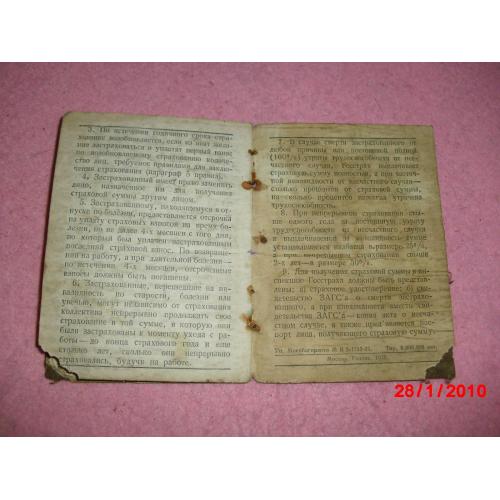 3. По истечении годичного срока стра-
хование возобновляется, если из них желав-
застраховаться и уплатят первый взнос
по возобновляемому страхованию количе-
ство лиц, требуемое правилами для заклю-
чения страхования (параграф 6 правил).
4. Застрахованный имеет право заменить
лицо, назначенное им для получения
страховой суммы другим лицом.
5. Застрахованным, находящимся в от-
пуске по болезни, предоставляется отсрочка
на уплату страховых взносов на время бо-
лезни, но не далее 4-х месяцев с того дня,
по который был уплачен застрахованным
последний страховой взнос. По возвраще-
нии на работу, а при длительной болезни—
по истечении 4-х месяцев, отсроченные
взносы должны быть внесены.
6. Застрахованные, перешедшие на ин-
валидность по старости, болезни или
увечью, могут независимо от страхования
коллектива непрерывно продолжать свое
страхование в той сумме, в которую они
были застрахованы к моменту ухода с ра-
боты—до конца страхового года и еще
столько лет, сколько они непрерывно
страховались, будучи на работе.
7. В случае смерти застрахованного от
любой причины или постоянной полной
(100%) утраты трудоспособности от нес-
частного случая, Госстрах выплачивает
страховую сумму полностью, а при частич-
ной инвалидности от несчастного случая—
столько процентов от страховой суммы,
на сколько процентов наступила утрата
трудоспособности.
8. При непрерывном страховании свы-
ше одного года за постоянную утрату
трудоспособности от несчастного случая
к выплачиваемой
устанавливается надбавка в размере 25%,
а при страховании свыше
2-х лет—в размере 50%.
9. Для получения страховой суммы в ин-
спекцию Госстраха должны быть представ-
лены: а) страховое удостоверение; б) сви-
детельство ЗАГС'а о смерти застрахо-
ванного, а при инвалидности вместо сви-
детельства ЗАГС'а— копия акта о несча-
стном случае, а также предъявляется пас-
порт лица, получающего страховую сумму.
Тип. Мособлгорлита № В
Москва,
28/1/2010